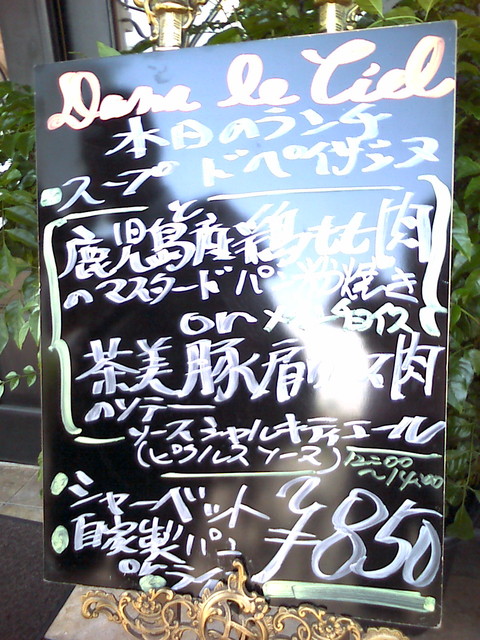 Dans le Ciel
本日のランチ
スープ ドペイザンヌ
と
鹿児島産鶏もも肉
のマスタードパン粉焼き
or メイン
茶美豚肩ロース肉
のソテー
ソースシャルキティエール
(ピクルスソース)
12:00
〜14:00
シャーベット
自家製パン
or ライス
¥850